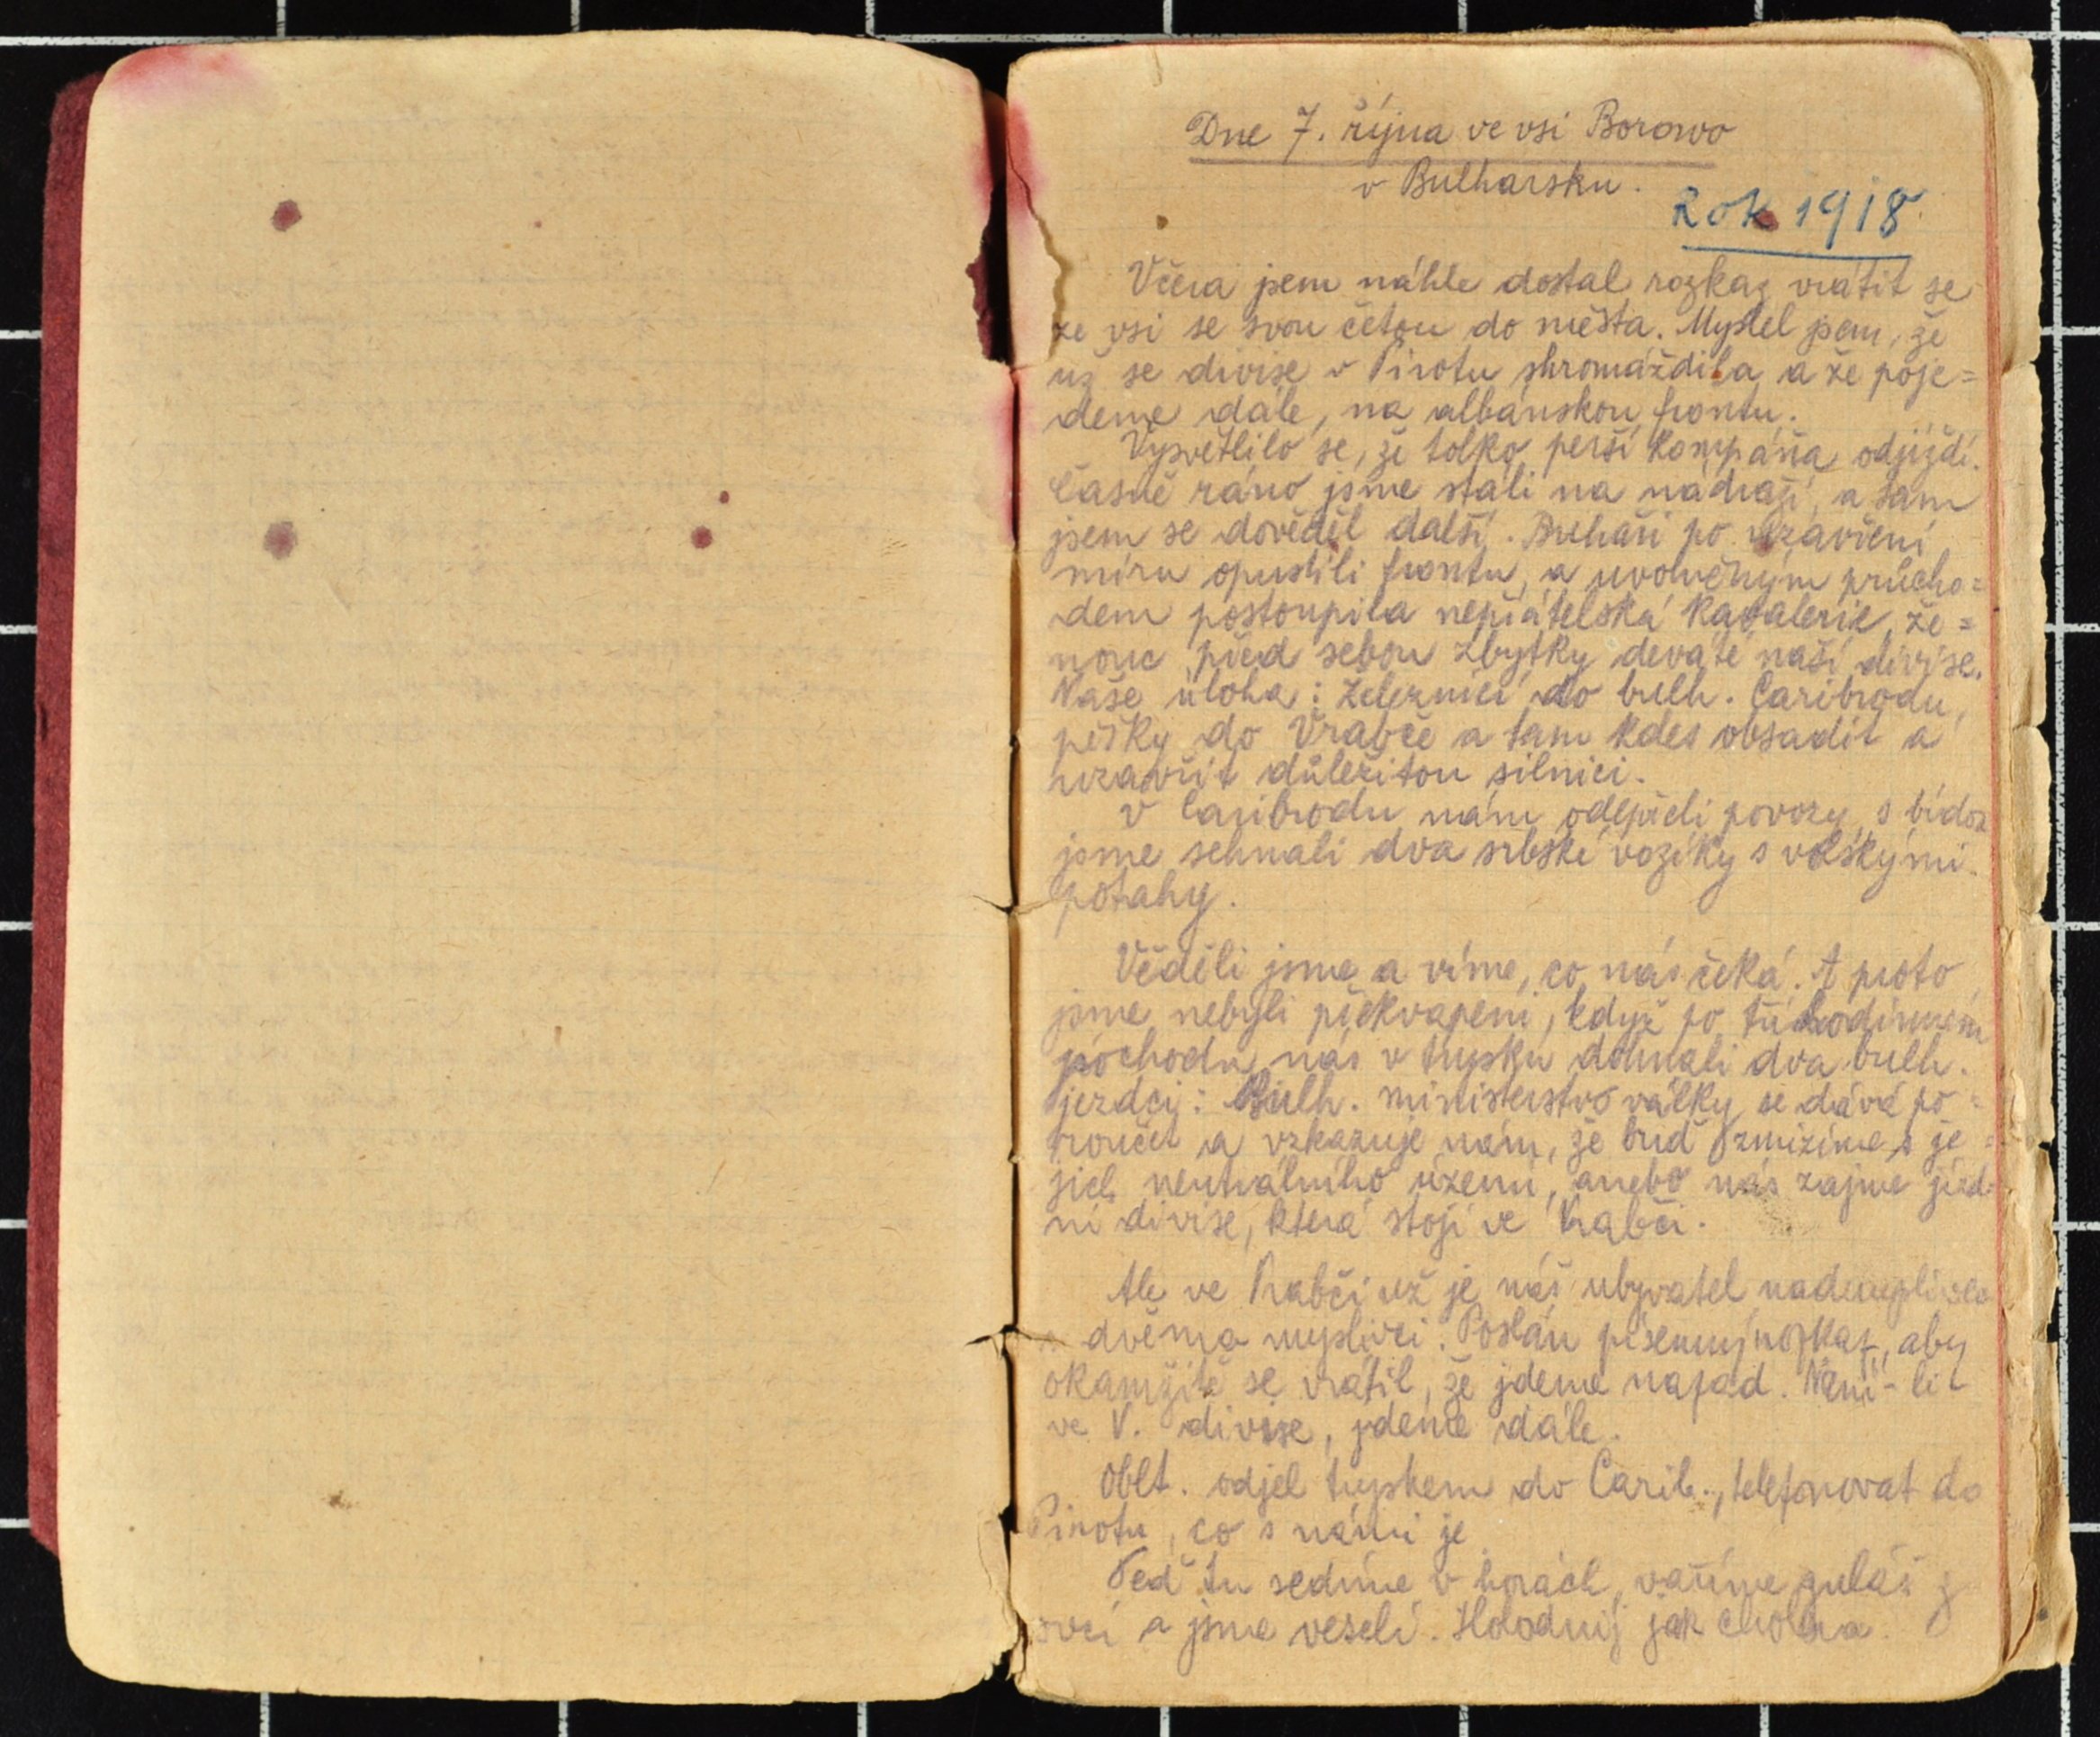 Dne 7. října ve vsi Borowo
v Bulharsku.
Rok 1918.
Včera jsem náhle dostal rozkaz vrátit se
ze vsi se svou četou do města. Myslel jsem, že
už se divise v Pirotu shromáždila a že poje=
deme dále, na albánskou frontu.
Vysvětlilo se, že tolko perší kompáňa odjíždí.
Časně ráno jsme stáli na nádraží, a tam
jsem se dověděl další. Bulhaři po uzavření
míru opustili frontu, a uvolněným průcho=
dem postoupila nepřátelská kavalerie, že=
nouc před sebou zbytky deváté naší divise.
Naše úloha: železnicí do bulh. Caribrodu,
pěšky do Vrabče a tam kdes obsadit a
uzavřít důležitou silnici.
V Caribrodu nám odepřeli povozy, s bídou
jsme sehnali dva srbské vozíky s volskými
potahy.
Věděli jsme a víme, co nás čeká. A proto
jsme nebyli překvapeni, když po tříhodinném
pochodu nás v trysku dohnali dva bulh.
jezdci: Bulh. ministerstvo války se dává po=
roučet a vzkazuje nám, že buď zmizíme s je=
jich neutrálního území, anebo nás zajme jízd=
ní divise, která stojí ve Vrabči.
Ale ve Vrabči už je náš ubyvatel
s dvěma myslivci. Poslán písemný rozkaz, aby
okamžitě se vrátil, že jdeme nazad. Není-li
ve V. divise, jdeme dále.
Oblt. odjel tryskem do Carib., telefonovat do
Pirotu, co s námi je
Teď tu sedíme v horách, vaříme guláš z
ovcí a jsme veselí. Hlodnyj jak